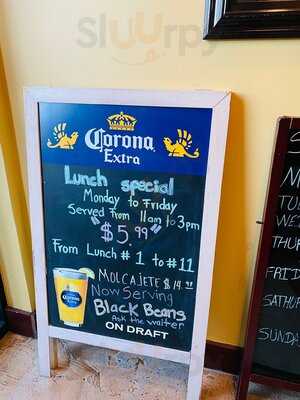 Sluurpy
Corona
Extra
Lunch special
Monday to Friday
Served From 11am to 3pm
"$5.99"
From Lunch #1 to #11
MOLCAJETE $14.99
Now Serving
Black Beans
Ask the waiter
ON DRAFT
Corona
TUE
WED
THUR
FRI
SATUR
SUNDA